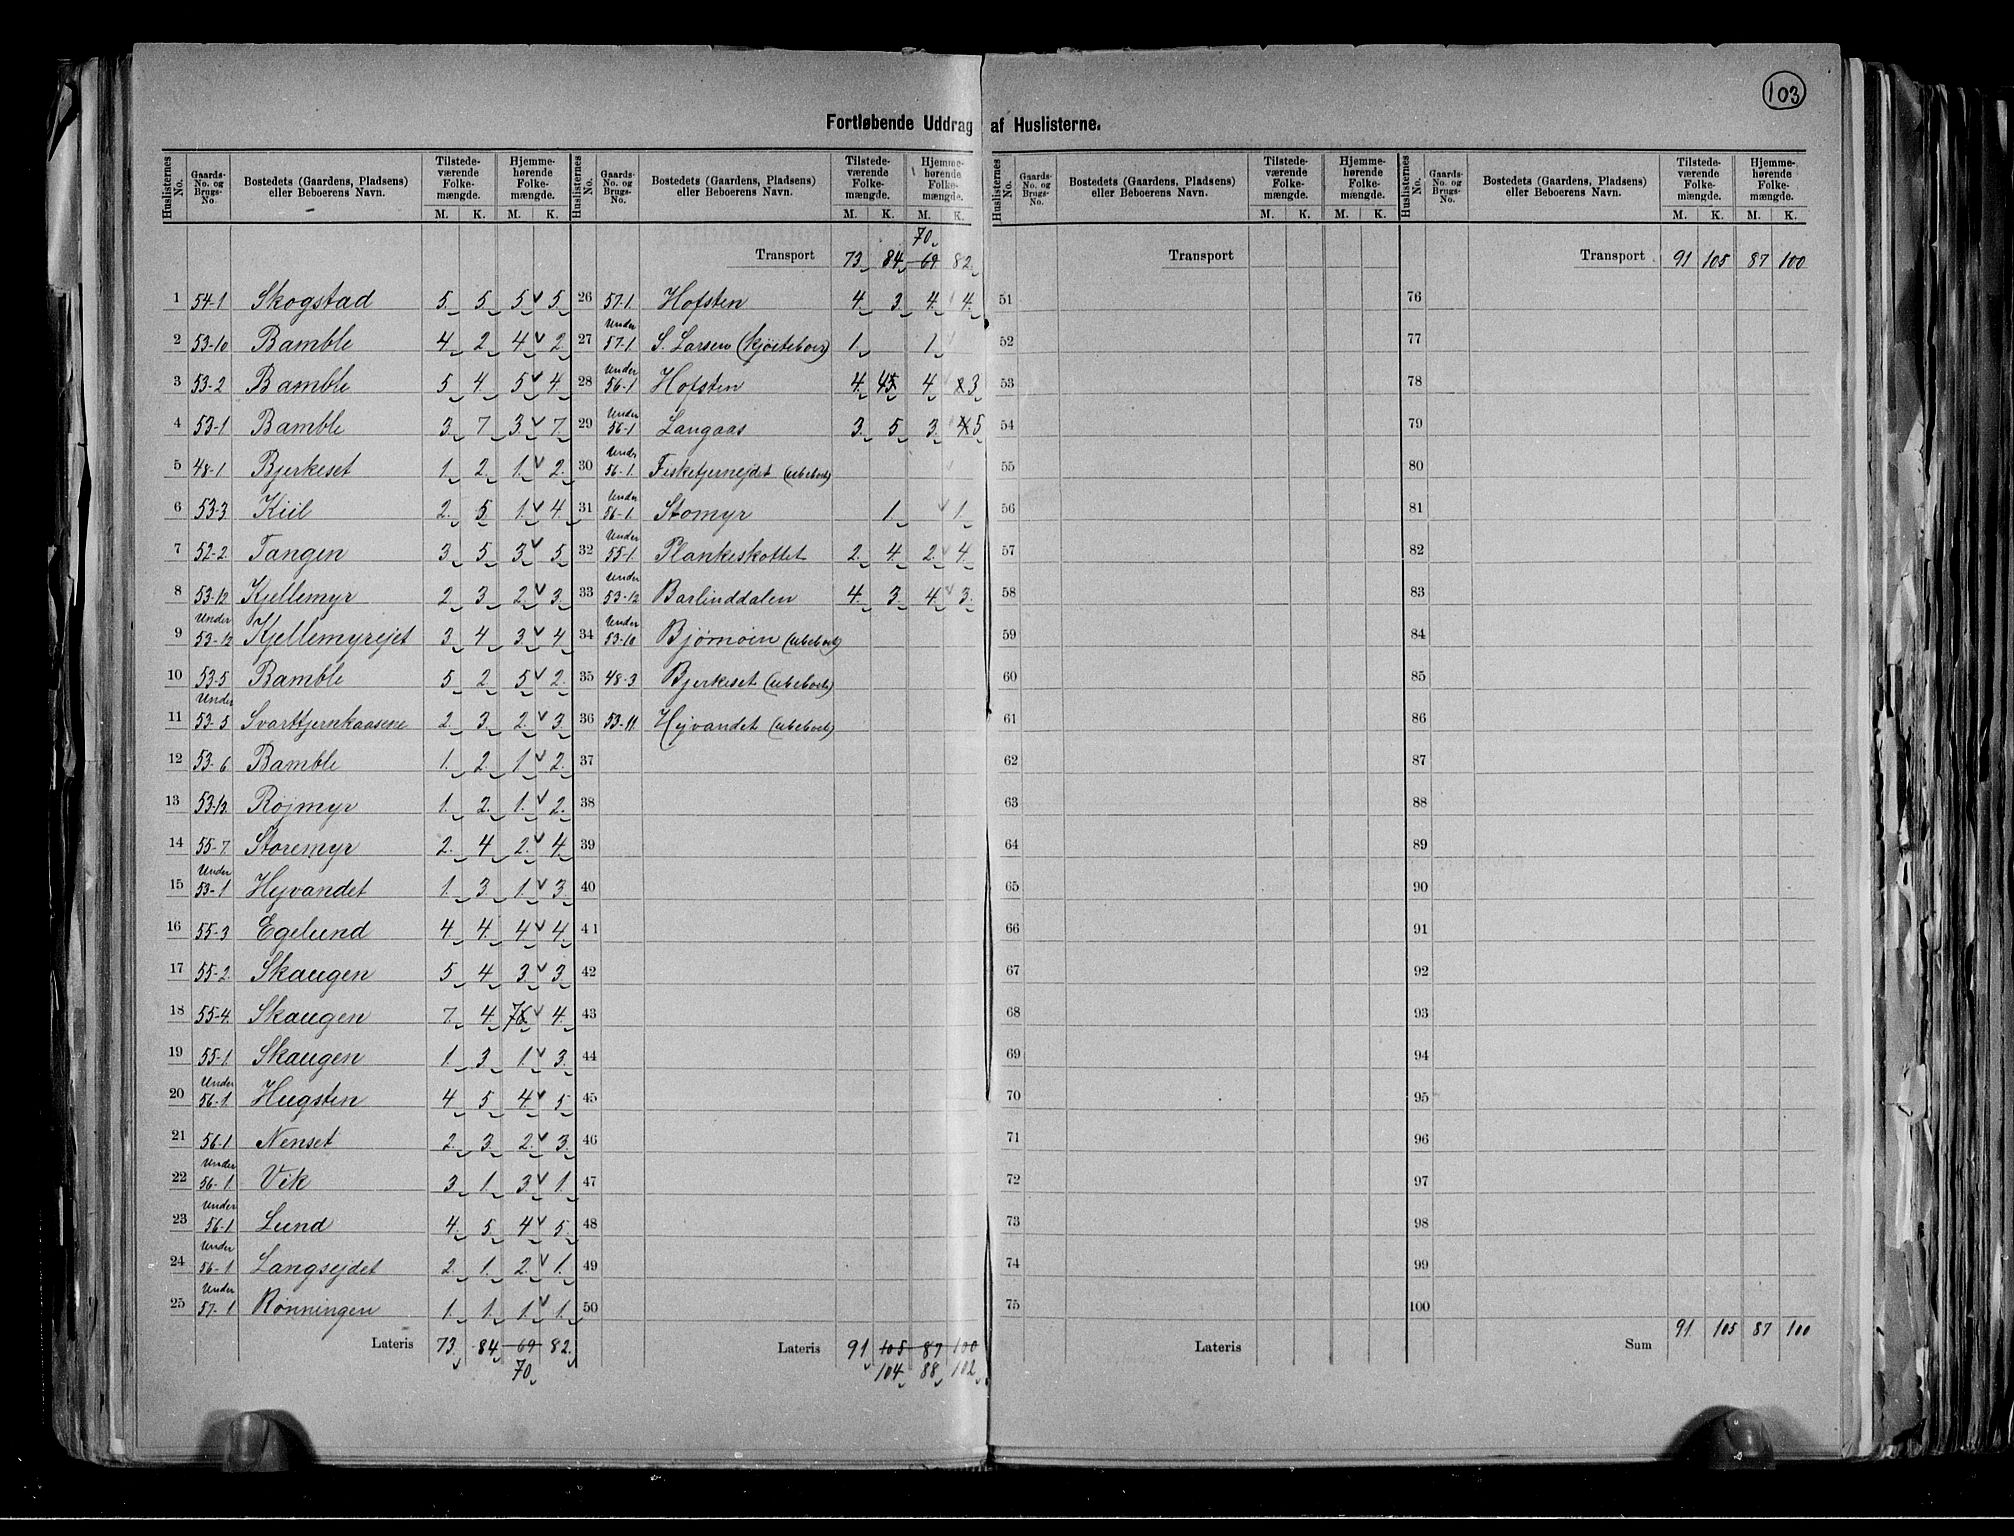 103
Fortløbende Uddrag af Huslisterne.
Huslisternes No. Gaards-No. og Brugs-No. Bostedets (Gaardens, Pladsens) eller Beboerens Navn. Tilstedeværende Folkemængde. M. K. Hjemmehørende Folkemængde. M. K.
1 54-1 Skogstad 5. 5. 5 5.
2 53-10 Bamble 4. 2. 4 2.
3 53-2 Bamble 5. 4. 5 4.
4 53-1 Bamble 3. 7. 3. 7.
5 48-1 Bjerkeset 1. 2. 1. 2.
6 53-3 Kiil 2. 5. 1. 4.
7 52-2. Tangen 3. 5. 3. 5.
8 53-12 Kjellemyr 2. 3. 2. 3.
9 Under 53-12 Kjellemyrejet 3. 4. 3. 4.
10 53-5 Bamble 5. 2. 5 2.
11 Under 53-5 Svarttjernkaasene 2. 3. 2. 3.
12 53-6 Bamble 1. 2. 1 2.
13 53-13. Røjmyr 1. 2. 1. 2.
14 55-7. Storemyr 2. 4. 2. 4.
15 Under 53-1 Hejvandet 1. 3. 1. 3.
16 55-3 Egelund 4. 4. 4 4.
17 55-2. Skaugen 5. 4. 3 3.
18 55-4. Skaugen 7. 4. 76 4.
19 55-1. Skaugen 1. 3. 1 3.
20 Under 56-1. Hugsten 4. 5. 4. 5.
21 56-1 Nenset 2. 3. 2. 3.
22 Under 56-1. Vik 3. 1. 3. 1.
23 Under 56-1 Lund 4. 5. 4 5.
24 Under 56-1 Langsejdet 2. 1. 2. 1.
25 Under 57-1 Rønningen 1. 1. 1. 1.
Lateris 73. 84. 69 82.
70.
Huslisternes No. Gaards-No. og Brugs-No. Bostedets (Gaardens, Pladsens) eller Beboerens Navn. Tilstedeværende Folkemængde. M. K. Hjemmehørende Folkemængde. M. K.
70.
Transport 73. 84. 69 82.
26 57-1 Hofsten 4. 3. 4. 4.
27 Under 57-1 S. Larsen 1. 1.
28 Under 56-1 Hofsten 4. 4 3
29 Under 56-1 Langaas 3. 5. 3. 5
30 Under 56-1. Fisketjernejdet (ubeboet)
31 Under 56-1. Stomyr 1. 1.
32 Under 55-1. Plankeskottet 2. 4. 2. 4.
33 Under 53-12 Barlinddalen 4. 3. 4. 3.
34 Under 53-10 Bjørnøen (ubeboet)
35 48-3 Bjerkeset (ubeboet)
36 53-11 Hejvandet (ubeboet)
37
38
39
40
41
42
43
44
45
46
47
48
49
50
Lateris 91. 105 87 100
104. 88. 102.
Huslisternes No. Gaards-No. og Brugs-No. Bostedets (Gaardens, Pladsens) eller Beboerens Navn. Tilstedeværende Folkemængde. M. K. Hjemmehørende Folkemængde. M. K.
Transport
51
52
53
54
55
56
57
58
59
60
61
62
63
64
65
66
67
68
69
70
71
72
73
74
75
Lateris
Huslisternes No. Gaards-No. og Brugs-No. Bostedets (Gaardens, Pladsens) eller Beboerens Navn. Tilstedeværende Folkemængde. M. K. Hjemmehørende Folkemængde. M. K.
Transport 91 105 87 100
76
77
78
79
80
81
82
83
84
85
86
87
88
89
90
91
92
93
94
95
96
97
98
99
100
Sum 91. 105 87 100